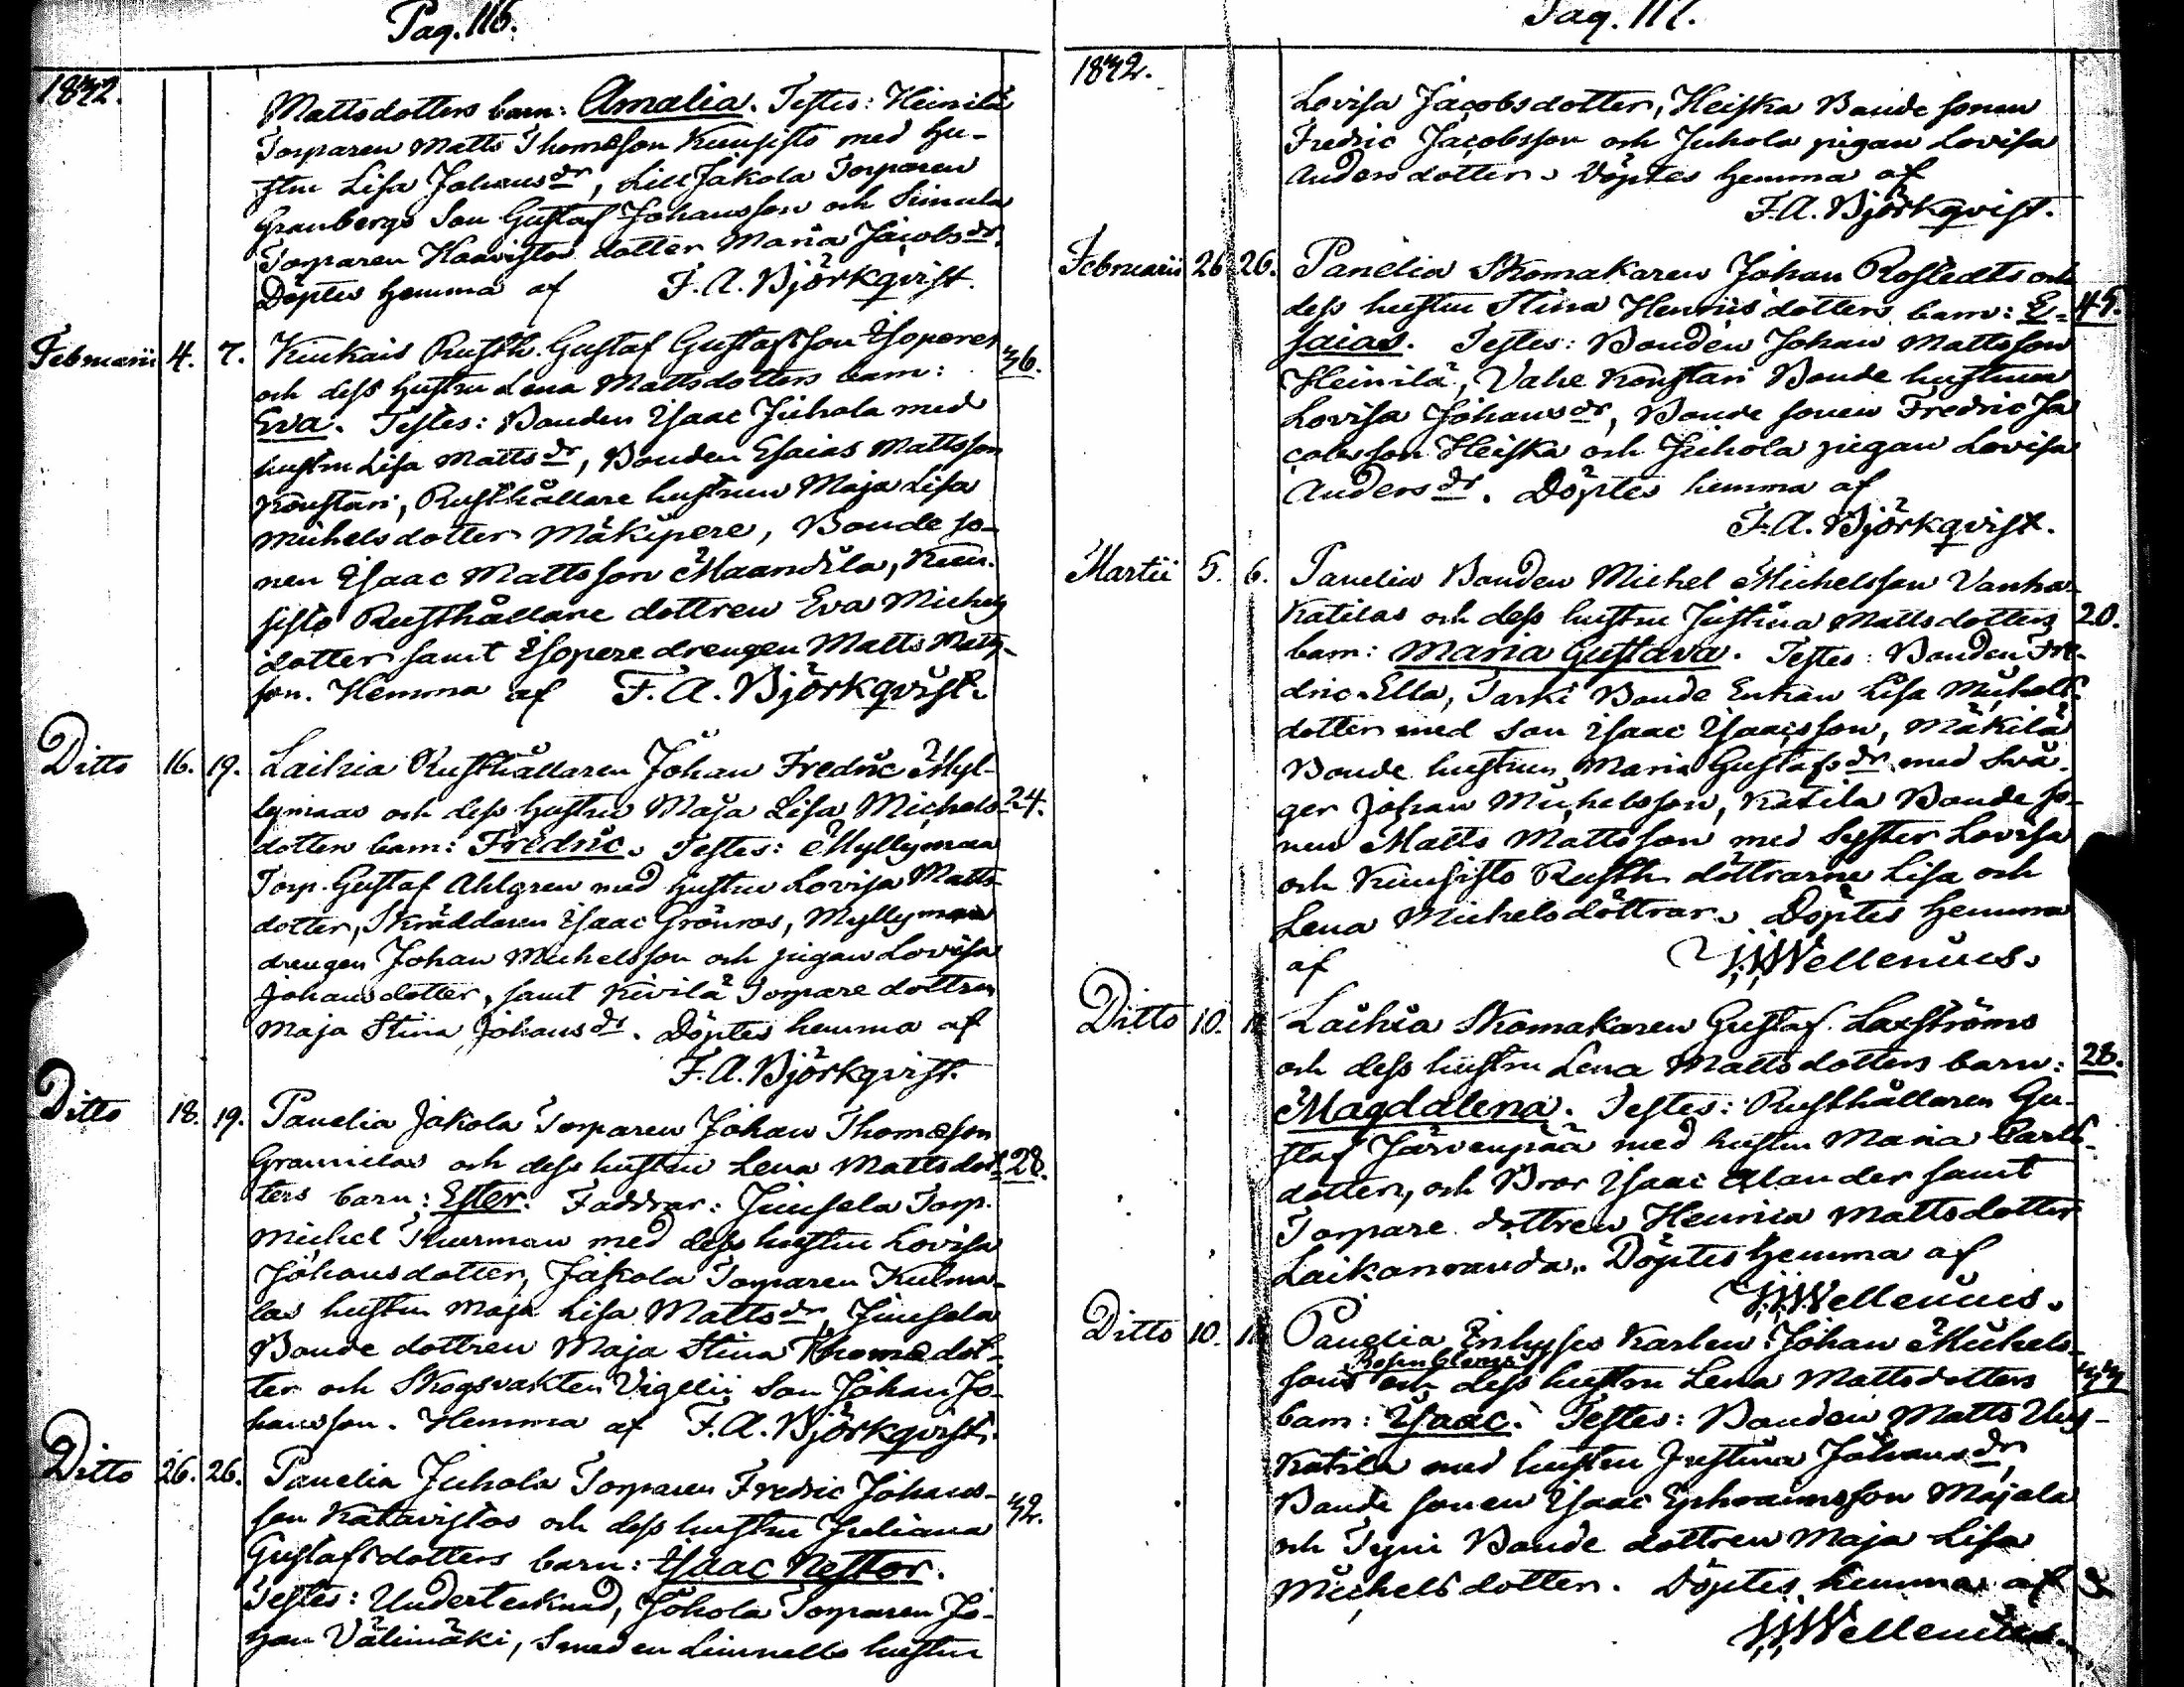 Pag. 116.
1842.
Mattsdotters barn: Amalia. Testes: Heinilä
Torparen Matts Thomæson Kuusisto med hu-
stru Lisa Johans dr, Lill Jakola Torparen
Granbergs Son Gustaf Johansson och Simula
Torparen Haavistos dotter Maria Jacobs dr.
Döptes hemma af F. A. Björkqvist.
Februarii 4. 7. Kiukais Rusth. Gustaf Gustafsson Isoperes
och dess hustru Lena Mattsdotters barn: 36.
Eva. Testes: Bonden Isaac Juhola med
hustru Lisa Matts dr, Bonden Esaias Mattsson
Konstari, Rusthållare hustrun Maja Lisa
Michelsdotter Mäkipere, Bonde so-
nen Isaac Mattsson Maandila, Kuu-
sisto Rusthållare dottren Eva Michels
dotter samt Isopere drengen Matts Matts-
son. Hemma af F. A. Björkqvist.
Ditto 16. 19. Laihia Rusthållaren Johan Fredric Myl-
lymaas och dess hustru Maja Lisa Michels- 24.
dotters barn: Fredric. Testes: Myllymaa
Torp. Gustaf Ahlgren med hustru Lovisa Matts-
dotter, Skräddaren Isaac Grönros, Myllymaa
drengen Johan Michelsson och pigan Lovisa
Johansdotter, samt Kivilä Torpare dottren
Maja Stina Johans dr. Döptes hemma af
F. A. Björkqvist.
Ditto 18. 19. Panelia Jakola Torparen Johan Thomæson
Grannilas och dess hustru Lena Mattsdot- 28.
ters barn: Ester. Faddrar: Juusela Torp.
Michel Thurman med dess hustru Lovisa
Johansdotter, Jakola Torparen Kulma-
las hustru Maja Lisa Matts dr, Juusela
Bonde dottren Maja Stina Thomædot-
ter och Skogsvakten Vigelii Son Johan Jo-
hansson. Hemma af F. A. Björkqvist.
Ditto 26. 26. Panelia Juhola Torparen Fredric Johans-
son Katavistos och dess hustru Juliana 42.
Gustafsdotters barn: Isaac Nestor.
Testes: Undertecknad, Juhola Torparen Jo-
han Välimäki, Smeden Linnells hustru
Pag. 117.
1842.
Lovisa Jacobsdotter, Heiska Bonde sonen
Fredric Jacobsson och Juhola pigan Lovisa
Andersdotter. Döptes hemma af
F. A. Björkqvist.
Februarii 26 26. Panelia Skomakaren Johan Rostedts och
dess hustru Stina Henricsdotters barn: E- 45.
saias. Testes: Bonden Johan Mattsson
Heinilä, Vahe Konstari Bonde hustrun
Lovisa Johans dr, Bonde sonen Fredric Ja
cobsson Heiska och Juhola pigan Lovisa
Anders dr. Döptes hemma af
F. A. Björkqvist.
Martii 5. 6. Panelia Bonden Michel Michelsson Vanha-
Katilas och dess hustru Justina Mattsdotters 20.
barn: Maria Gustava. Testes: Bonden Fre-
dric Ella, Tarki Bonde Enkan Lisa Michels-
dotter med Son Isaac Isaacsson, Mäkilä
Bonde hustrun Maria Gustafs dr med Svå-
ger Johan Michelsson, Katila Bonde so-
nen Matts Mattsson med Syster Lovisa
och Kuusisto Rusth. döttrarne Lisa och
Lena Michelsdöttrar. Döptes hemma
af Wellenius.
Ditto 10. Laihia Skomakaren Gustaf Laxströms
och dess hustru Lena Mattsdotters barn: 28.
Magdalena. Testes: Rusthållaren Gu-
staf Järvenpää med hustru Maria Carls-
dotter, och Bror Isaac Alander samt
Torpare dottren Henrica Mattsdotter
Laikanranda. Döptes hemma af
Wellenius.
Ditto 10. Panelia Inhyses Karlen Johan Michels-
Rosenbergs
sons och dess hustru Lena Mattsdotters 44
barn: Isaac. Testes: Bonden Matts Uusi-
Katila med hustru Justina Johans dr,
Bonde sonen Isaac Ephraimsson Majala
och Tyni Bonde dottren Maja Lisa
Michelsdotter. Döptes hemma af
Wellenius.